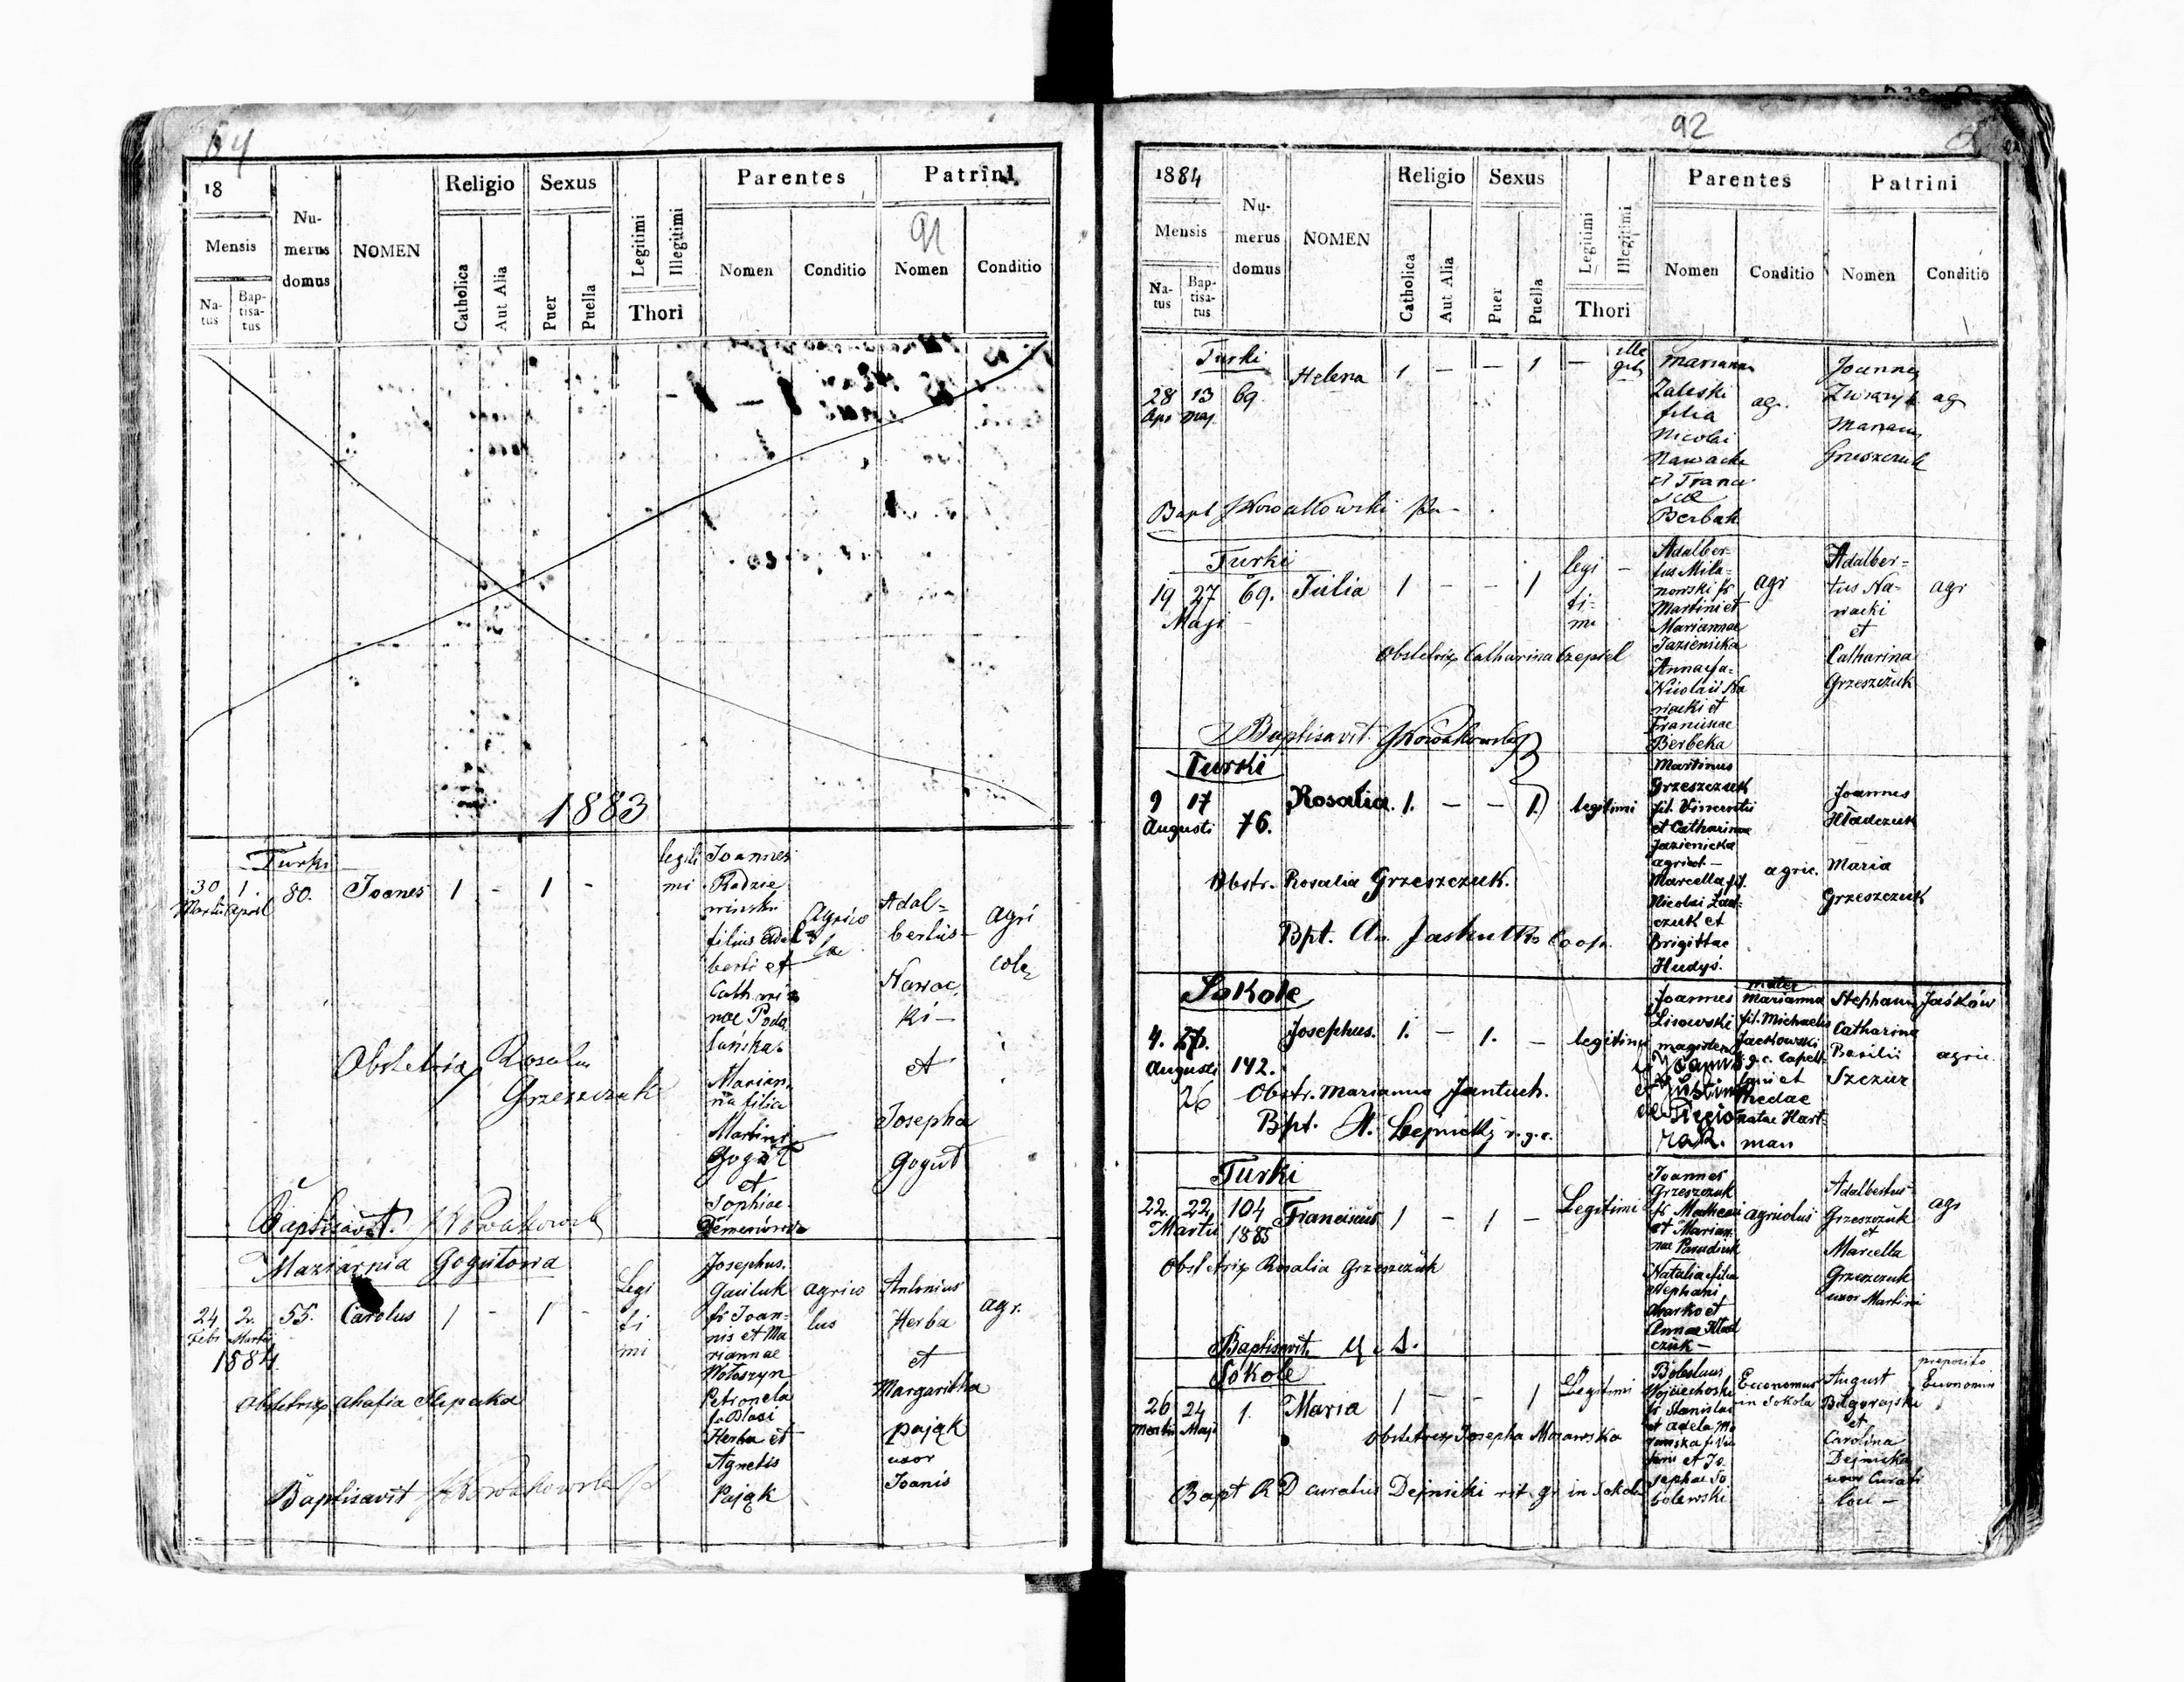 91
18
Mensis
Na-
tus
Bap-
tisa-
tus
Nu-
merus
domus
NOMEN
Religio
Catholica
Aut Alia
Sexus
Puer
Puella
Legitimi
Illegitimi
Thori
Parentes
Nomen
Conditio
Patrini
Nomen
Conditio
1883
Turki
30 1.
Martii April
80.
Joanes
1 - 1 -
legiti
mi
Joannes
Radzie
winski
filius Adal
berti et
Cathari
nae Podo
lańska.
Marian
na filia
Martini
Gogut
et
Sophiae
Agrico
lae
Adal-
bertus
Nawac
ki -
et
Josepha
Gogut
Agri
cola
Obstetrix Rosalia
Grzeszczuk
Baptisavit. J Nowakowski
Maziarnia Gogutowa
24 2.
Febr Martii
1884
55.
Carolus
1 - 1 -
Legi
ti
mi
Josephus
Gauluk
fs Joan-
nis et Ma
riannae
Wołoszyn
Petronela
fa Blasi
Herba et
Agnetis
Pająk
agrico
lus
Antonius
Herba
et
Margaritha
pająk
uxor
Joanis
agr.
Obstetrix Ahafia
Baptisavit J Nowakowski
92
1884
Mensis
Na-
tus
Bap-
tisa-
tus
Nu-
merus
domus
NOMEN
Religio
Catholica
Aut Alia
Sexus
Puer
Puella
Legitimi
Illegitimi
Thori
Parentes
Nomen
Conditio
Patrini
Nomen
Conditio
Turki
28 13
Apr Maj
69
Helena
1 - - 1 -
ille
git
Marianna
Zaleski
filia
Nicolai
Nawacki
et Franci
scae
Berbek
agr.
Joannes
ag
Bapt J Nowakowski
Turki
19 27
Maji
69.
Julia
1 - - 1
legi
ti-
mi
-
Adalber-
tus Mila-
nowski fs
Martini et
Mariannae
Jazienicka
Anna fa-
Nicolai Na
wacki et
Franciscae
Berbeka
agr
Adalber-
tus Na-
wacki
et
Catharina
Grzeszczuk
agr
Obstetrix Catharina Czepiel
Baptisavit J Nowakowski
Turki
9 17
Augusti
76.
Rosalia.
1. - - 1.
legitimi
Martinus
Grzeszczuk
fil. Vincentii
et Catharinae
Jazienicka
agricol -
Marcella fil.
Nicolai Ład-
czuk et
Brigittae
Hudyś.
agric.
Joannes
Hładczuk
-
Maria
Grzeszczuk
Obstr. Rosalia Grzeszczuk.
Bpt. An. Coop.
Sokole
4.
Augusti
26
142.
Josephus.
1. - 1. -
legitimi
Joannes
Lisowski
magister
mater
Marianna
fil. Michaelis
Jackowski
et
natae Hart-
man
Stephanus
Catharina
Basilii
Szczur
Jaśków
agric.
Obstr. Marianna Jantuch.
Bpt.
Turki
22. 22
Martii
104
1885
Franciscus
1 - 1 -
Legitimi
Joannes
Grzeszczuk
fs Mathei
et Marian
nae
Natalia filia
Stephani
Charko et
Annae Hład
czuk -
agricolus
Adalbertus
Grzeszczuk
et
Marcella
Grzeszczuk
uxor Martini
agr
Obstetrix Rosalia Grzeszczuk
Baptisavit.
Sokole
26 24
Martii Maji
1.
Maria
1 - - 1
Legitimi
Boleslaus
Wojciechoski
fs Stanislai
et Adela
et Jo
sephae So
bolewski
Economus
in Sokola
August
Bilgorajski
et
Carolina
Dejnicka
uxor Curati
loci -
Economus
Obstetrix Josepha Morawska
Bapt R D curatus Dejnicki rit gr in Sokole